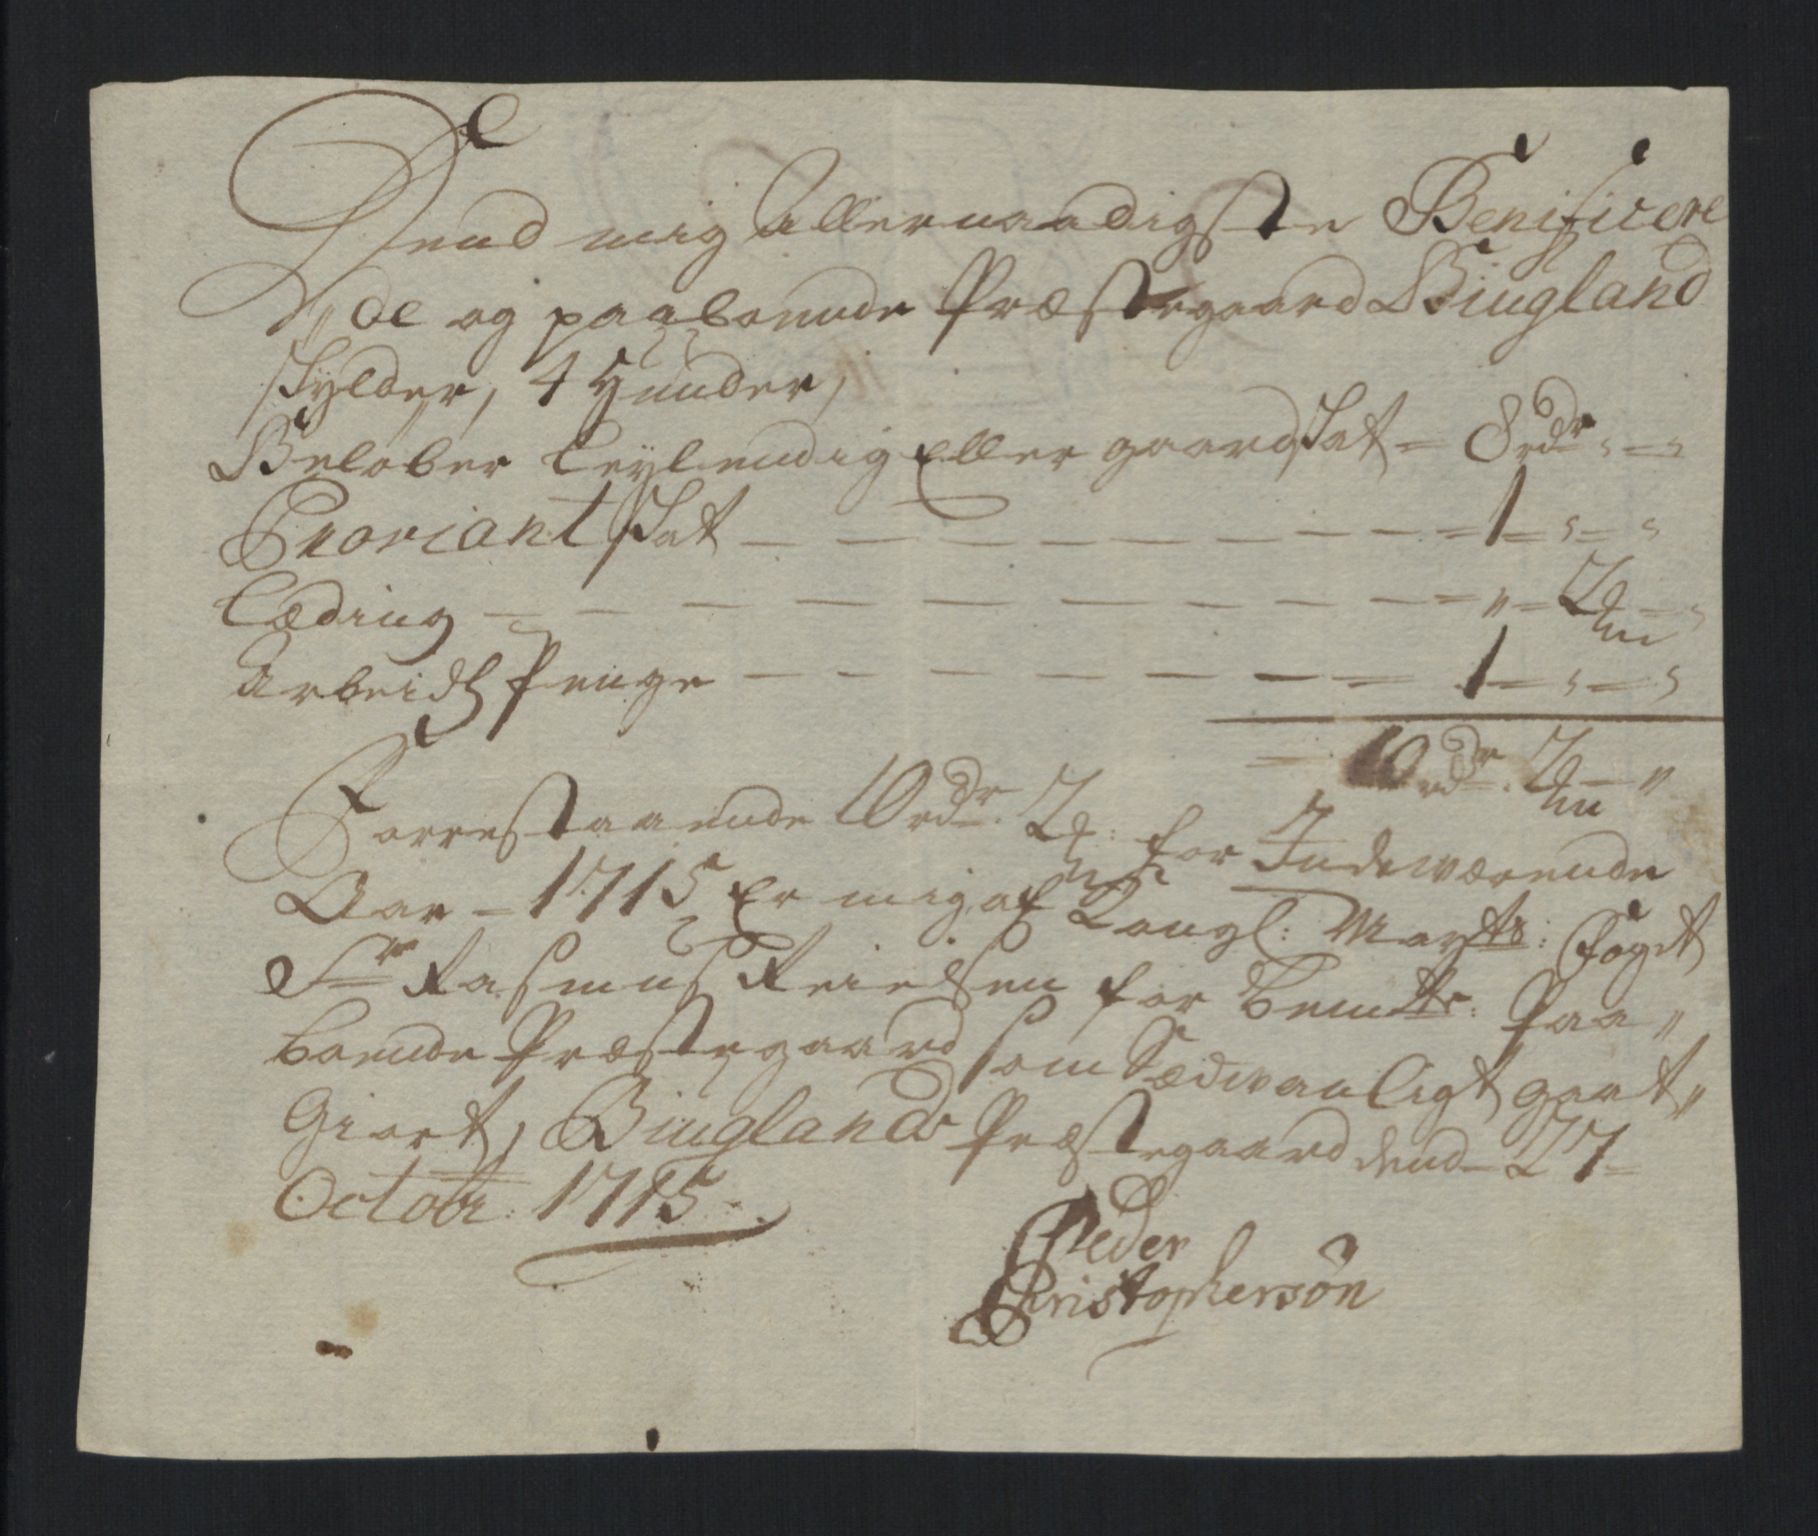 Dend mig Allernaadigste Benificere
de og paaboende Præstegaard Biugland
skylder, 4 Hunder,
Beløber Leylendig Eller gaardskat = 8 rdr
Proviant skat — — — — — — — — = 1 =
Læding — — — — — — — — — — = " = 2
Arbeids Penge — — — — — — — = 1 =
= 10 rdr. 2 "
Forrestaaende 10 rdr. 2 : for Indeværende
Aar = 1715 Er mig af Kongl: Mayts: Foget
Sr Rasmus Reiersen for bemte: Paa"
boende Præstegaard som Sædvanligt got"
Giort, Biuglands Præstegaard dend = 27 =
Octobr: 1715
Peder
Christophersøn